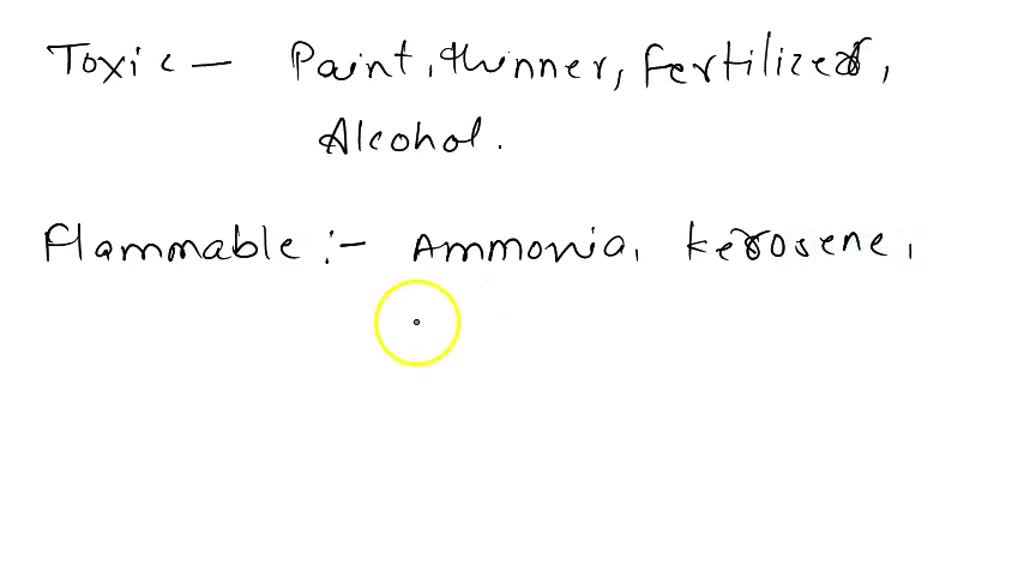 Toxic - Paint, thinner, fertilizer,
Alcohol.
Flammable :- Ammonia, kerosene,